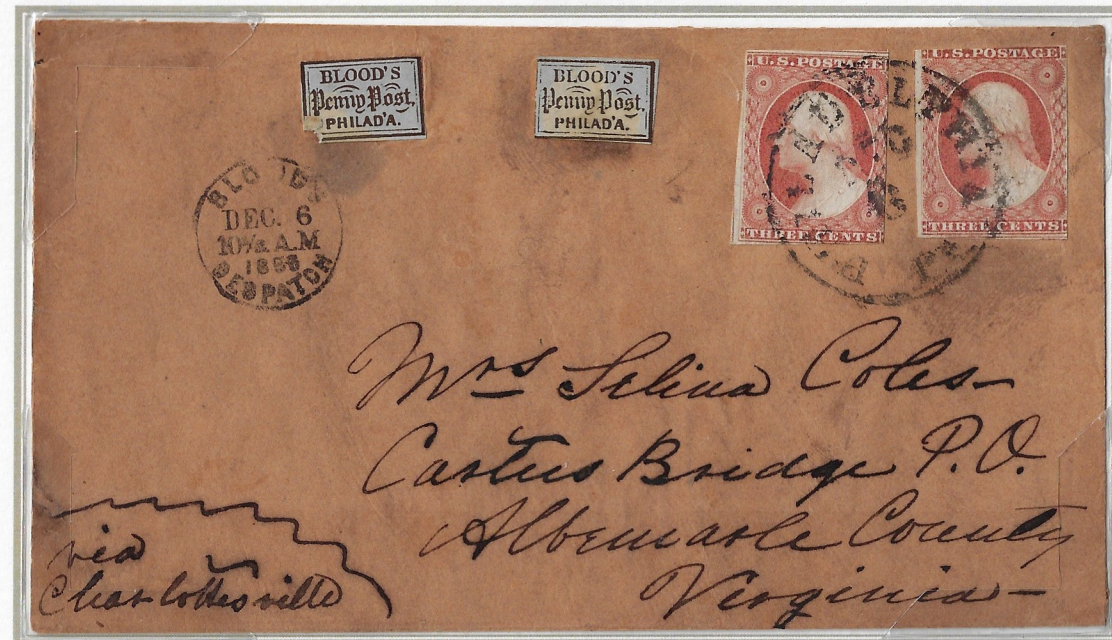 BLOOD'S
Penny Post,
PHILAD'A.
BLOOD'S
Penny Post,
PHILAD'A.
U.S. POSTAGE
THREE CENTS
U.S. POSTAGE
THREE CENTS
BLOOD'S
DEC. 6
10½ A.M
DESPATCH
Mrs Selina Coles
Carters Bridge P.O.
Albemarle County
Virginia
via
Charlottesville